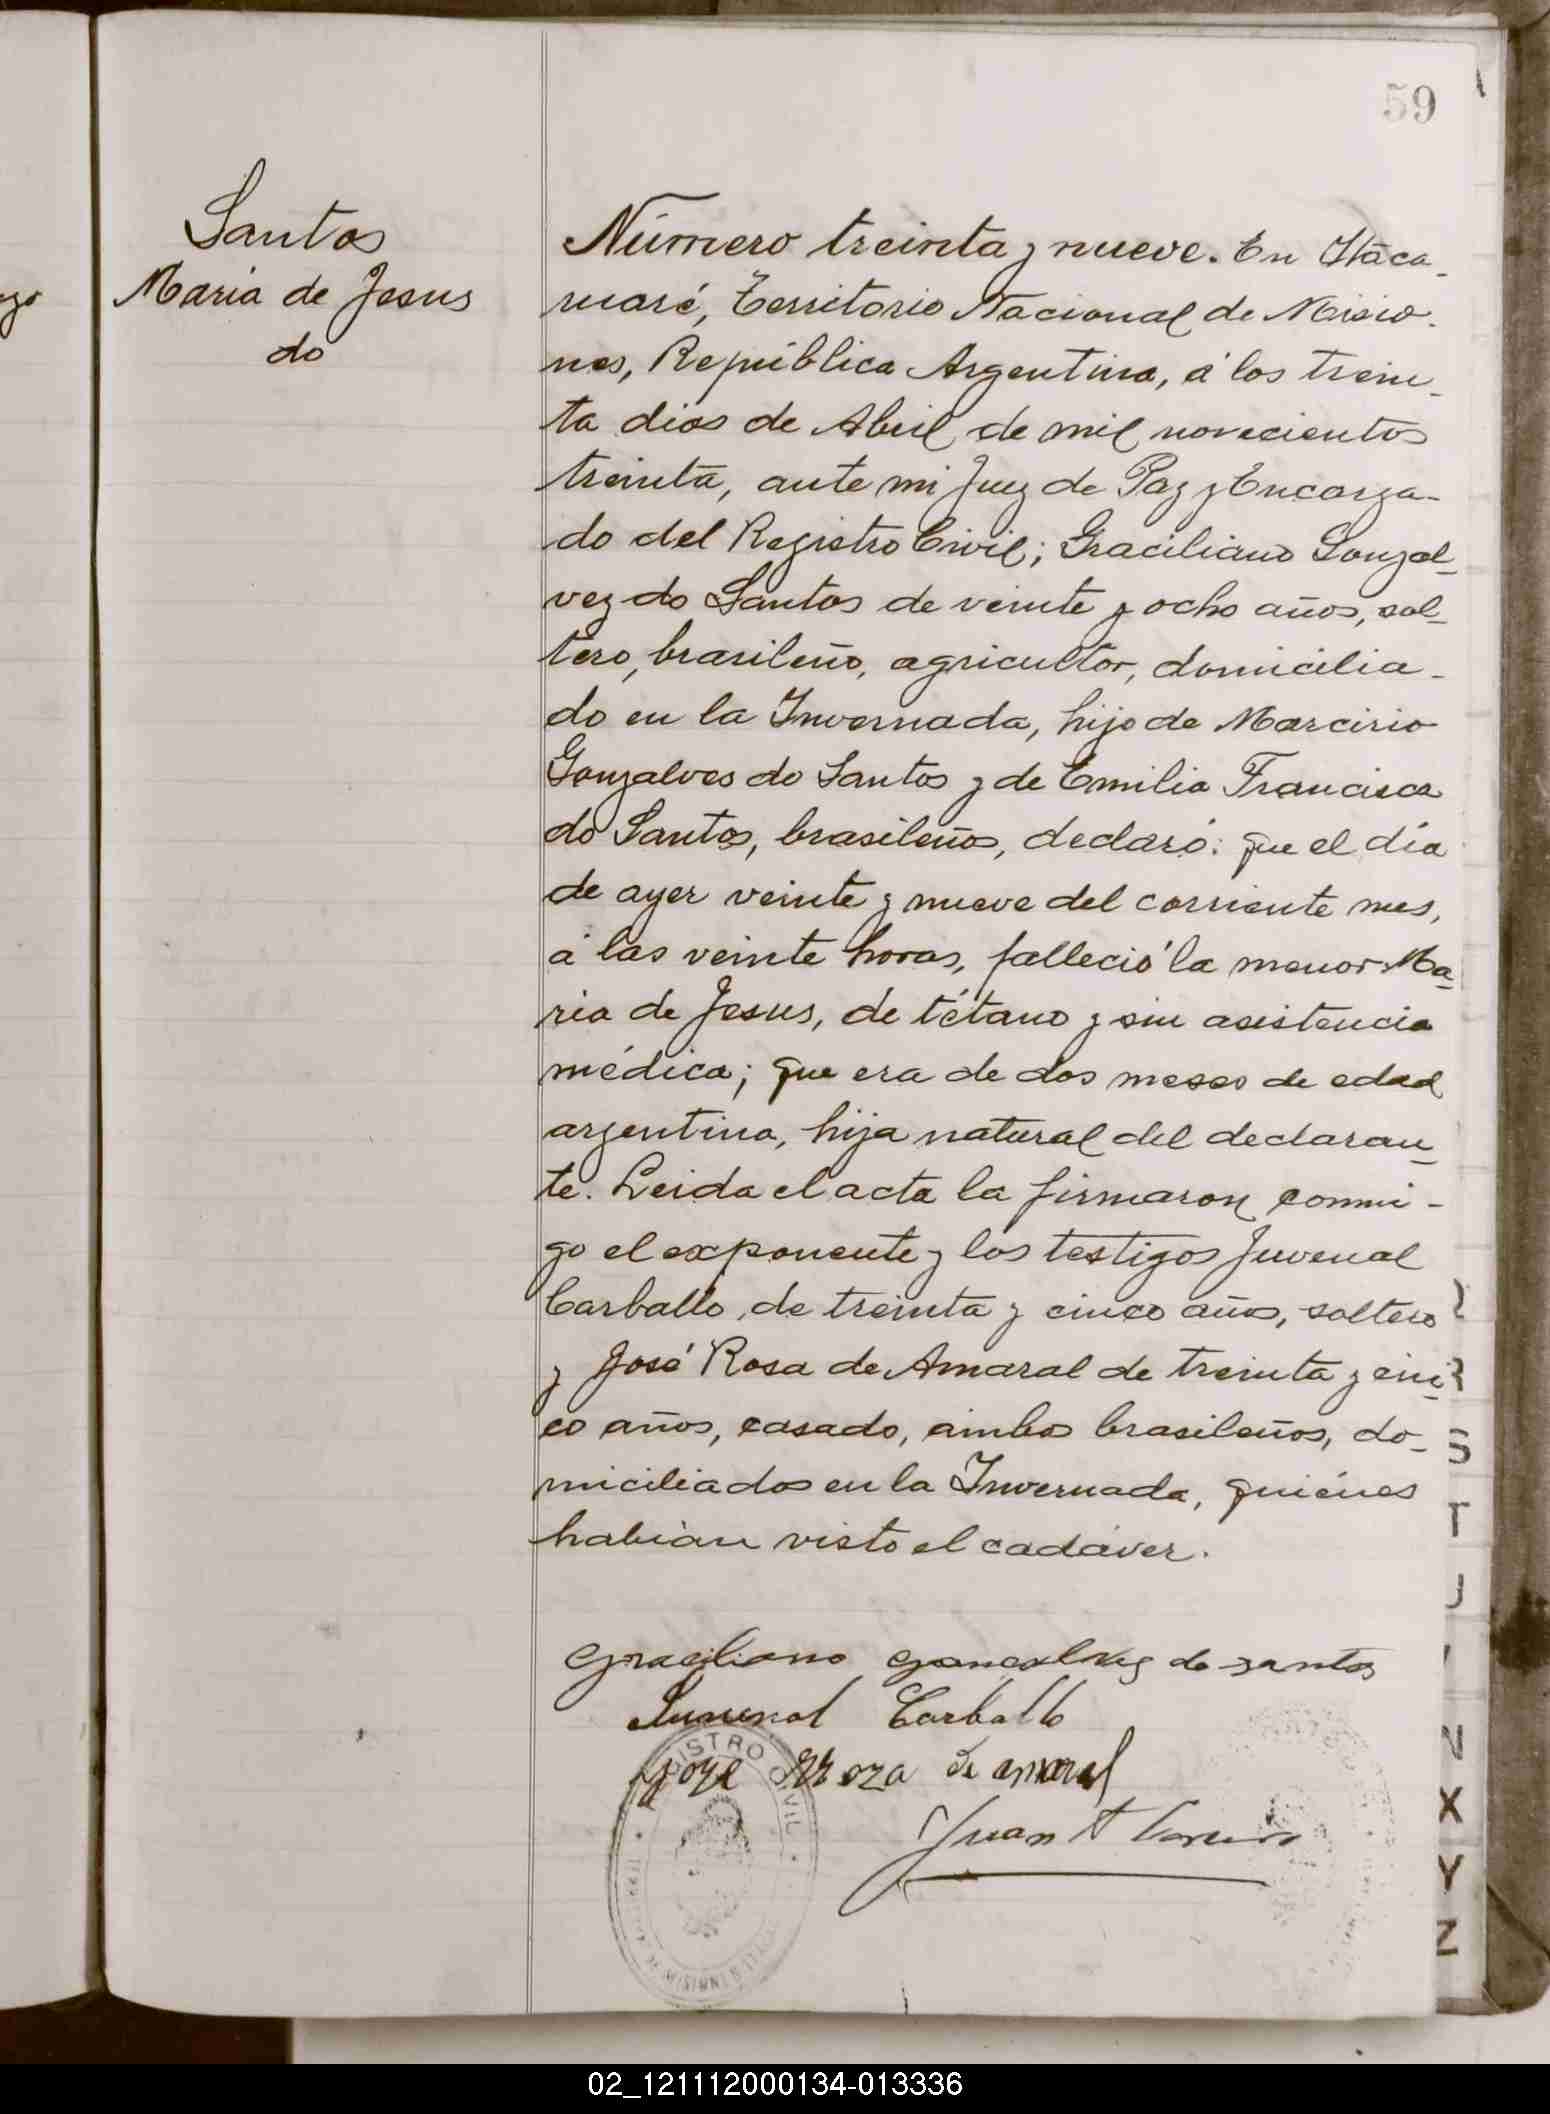 59
Santos
Maria de Jesus
do
Número treinta y nueve. En Itaca-
ruaré, Territorio Nacional de Misio-
nes, República Argentina, á los trein-
ta dias de Abril de mil novecientos
treinta, ante mi Juez de Paz y Encarga-
do del Registro Civil; Graciliano Gonzal-
vez do Santos de veinte y ocho años, sol-
tero, brasileño, agricultor, domicilia-
do en la Invernada, hijo de Marcirio
Gonzalves do Santos y de Emilia Francisca
do Santos, brasileños, declaró: que el día
de ayer veinte y nueve del corriente mes,
á las veinte horas, falleció la menor Ma-
ria de Jesus, de tétano y sin asistencia
médica; que era de dos meses de edad
argentina, hija natural del declaran-
te. Leida el acta la firmaron conmi-
go el exponente y los testigos Juvenal
Carballo, de treinta y cinco años, soltero
y José Rosa de Amaral de treinta y cin-
co años, casado, ambos brasileños, do-
miciliados en la Invernada, quiénes
habían visto el cadáver.
Graciliano Goncalves do santos
Juvenal Carballo
Joze Roza de amaral
Juan A
REGISTRO CIVIL
S
T
U
X
Y
Z
02_121112000134-013336